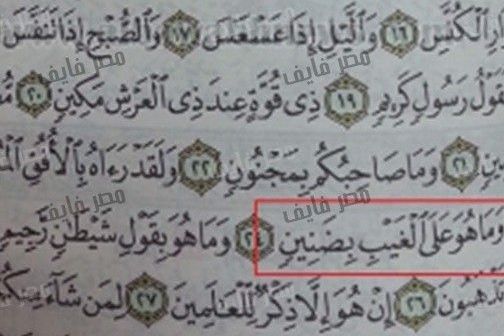 الْكُنَّسِ ١٦ وَالَّيْلِ إِذَا عَسْعَسَ ١٧ وَالصُّبْحِ إِذَا تَنَفَّسَ
قَوْلُ رَسُولٍ كَرِيمٍ ١٩ ذِى قُوَّةٍ عِندَ ذِى الْعَرْشِ مَكِينٍ ٢٠
٢١ وَمَا صَاحِبُكُم بِمَجْنُونٍ ٢٢ وَلَقَدْ رَءَاهُ بِالْأُفُقِ
وَمَا هُوَ عَلَى الْغَيْبِ بِصَنِينٍ ٢٤ وَمَا هُوَ بِقَوْلِ شَيْطَٰنٍ رَّجِيمٍ
٢٦ إِنْ هُوَ إِلَّا ذِكْرٌ لِّلْعَٰلَمِينَ ٢٧ لِمَن شَآءَ مِنكُمْ
مصر فايف
مصر فايف
مصر فايف
مصر فايف